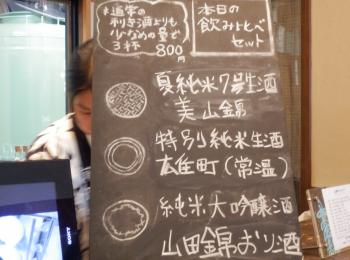 *通常の
利き酒よりも
少なめの量で
3杯 800円
本日の
飲みくらべ
セット
夏純米7号生酒
美山錦
特別純米生酒
本生町(常温)
純米大吟醸酒
山田錦おり酒
SONY